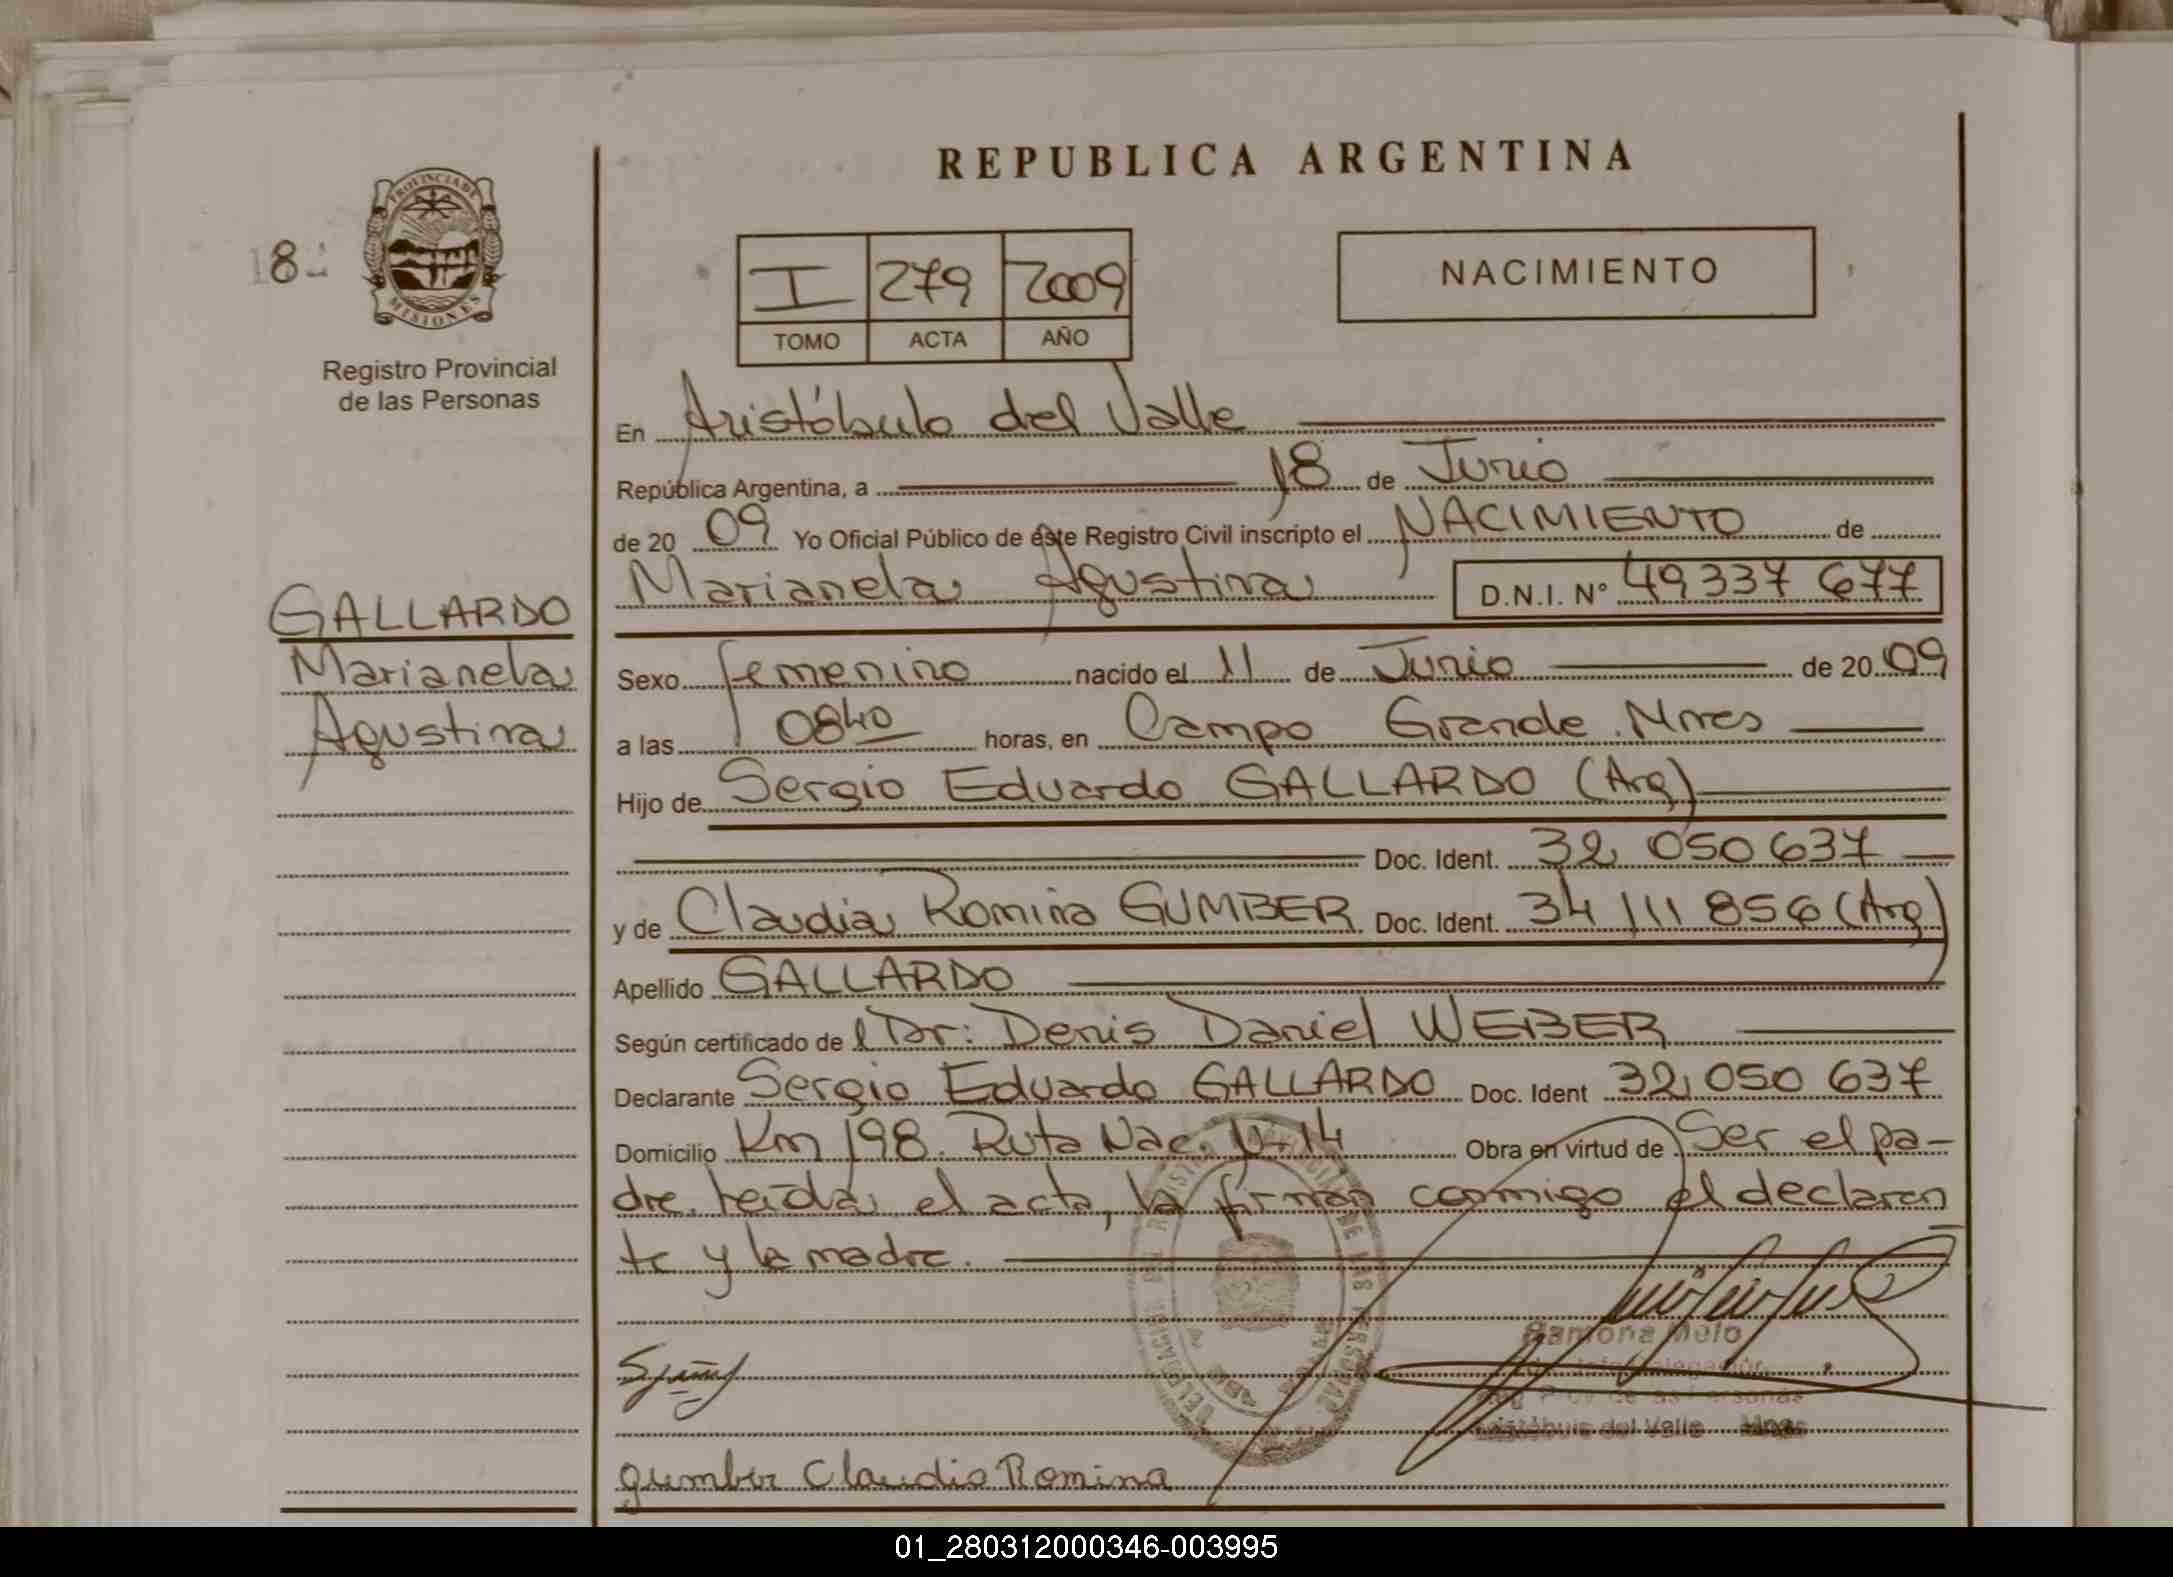 REPUBLICA ARGENTINA
PROVINCIA DE
MISIONES
18
Registro Provincial
de las Personas
I 279 2009
TOMO ACTA AÑO
NACIMIENTO
En Aristóbulo del Valle
República Argentina, a 18 de Junio
de 20 09 Yo Oficial Público de éste Registro Civil inscripto el NACIMIENTO de
Marianela Agustina D.N.I. Nº 49337 677
GALLARDO
Marianela
Agustina
Sexo femenino nacido el 11 de Junio de 20 09
a las 08 40 horas, en Campo Grande. Mnes
Hijo de Sergio Eduardo GALLARDO (Arg)
Doc. Ident. 32 050 637
y de Claudia Romina GUMBER Doc. Ident. 34 111 856 (Arg)
Apellido GALLARDO
Según certificado de l Dr: Denis Daniel WEBER
Declarante Sergio Eduardo GALLARDO Doc. Ident 32 050 637
Domicilio Km 198. Ruta Nac. Nº 14 Obra en virtud de Ser el pa-
dre. Leída el acta, la firman conmigo el declaran
te y la madre.
Ramona Melo
Aristóbulo del Valle Mnes
gumber Claudia Romina
01_280312000346-003995